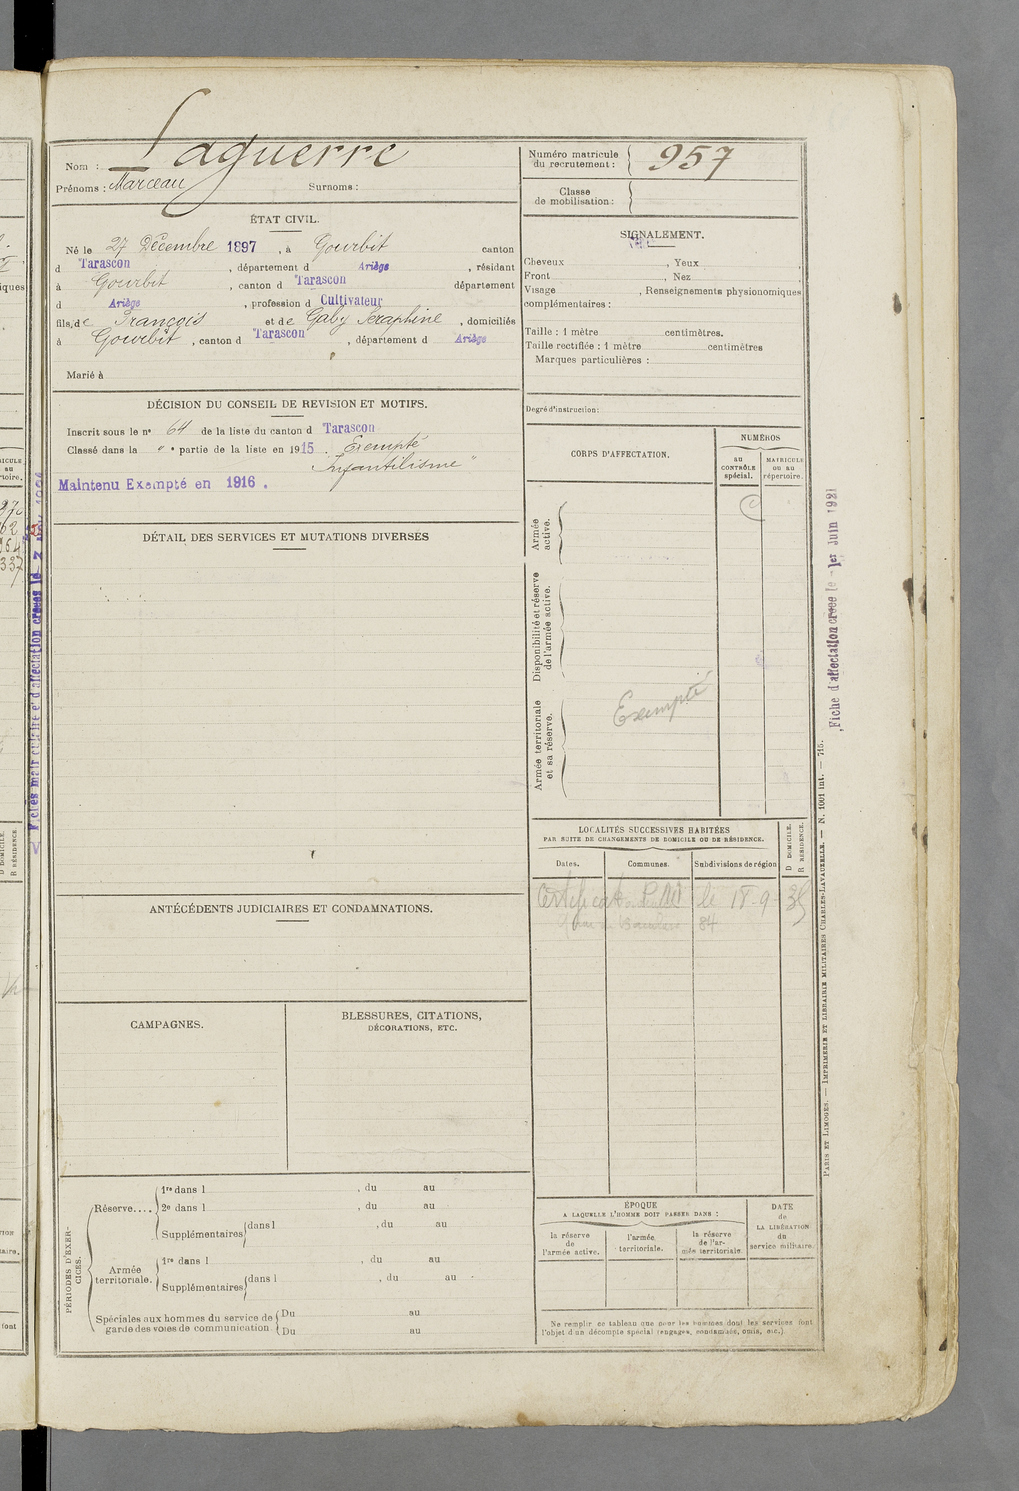 Nom : Laguerre
Prénoms : Marceau Surnoms :
Numéro matricule du recrutement : 957
Classe de mobilisation :
ÉTAT CIVIL.
Né le 27 Décembre 1897, à Gourbit canton
d Tarascon, département d Ariège, résidant
à Gourbit, canton d Tarascon département
d Ariège, profession d Cultivateur
fils de François et de Gaby Séraphine, domiciliés
à Gourbit, canton d Tarascon, département d Ariège
Marié à
SIGNALEMENT.
Cheveux , Yeux ,
Front , Nez
Visage , Renseignements physionomiques
complémentaires :
Taille : 1 mètre centimètres.
Taille rectifiée : 1 mètre centimètres
Marques particulières :
Degré d'instruction :
DÉCISION DU CONSEIL DE REVISION ET MOTIFS.
Inscrit sous le nº 64 de la liste du canton d Tarascon
Classé dans la " e partie de la liste en 1915. Exempté
Infantilisme"
Maintenu Exempté en 1916.
DÉTAIL DES SERVICES ET MUTATIONS DIVERSES
CORPS D'AFFECTATION.
NUMÉROS
au CONTRÔLE spécial.
MATRICULE ou au répertoire.
Armée active.
Disponibilité et réserve de l'armée active.
Armée territoriale et sa réserve.
Exempté
LOCALITÉS SUCCESSIVES HABITÉES
PAR SUITE DE CHANGEMENTS DE DOMICILE OU DE RÉSIDENCE.
D DOMICILE.
R RÉSIDENCE.
Dates. Communes. Subdivisions de région
Certificat P.M. le 18-9-35
84
ANTÉCÉDENTS JUDICIAIRES ET CONDAMNATIONS.
CAMPAGNES.
BLESSURES, CITATIONS,
DÉCORATIONS, ETC.
PÉRIODES D'EXERCICES.
Réserve....
1re dans l , du au
2e dans l , du au
Supplémentaires dans l , du au
Armée territoriale.
1re dans l , du au
Supplémentaires dans l , du au
Spéciales aux hommes du service de garde des voies de communication
Du au
Du au
ÉPOQUE
A LAQUELLE L'HOMME DOIT PASSER DANS :
la réserve de l'armée active.
l'armée territoriale.
la réserve de l'armée territoriale.
DATE de LA LIBÉRATION du service militaire.
Ne remplir ce tableau que pour les hommes dont les services font
l'objet d'un décompte spécial (engagés, condamnés, omis, etc.)
Fiche d'affectation créée le 1er Juin 1921
PARIS ET LIMOGES. — IMPRIMERIE ET LIBRAIRIE MILITAIRES CHARLES-LAVAUZELLE. — N. 1001 int. — 715.